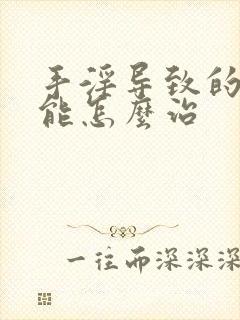 手淫导致的
能怎麼治
一往而深深深